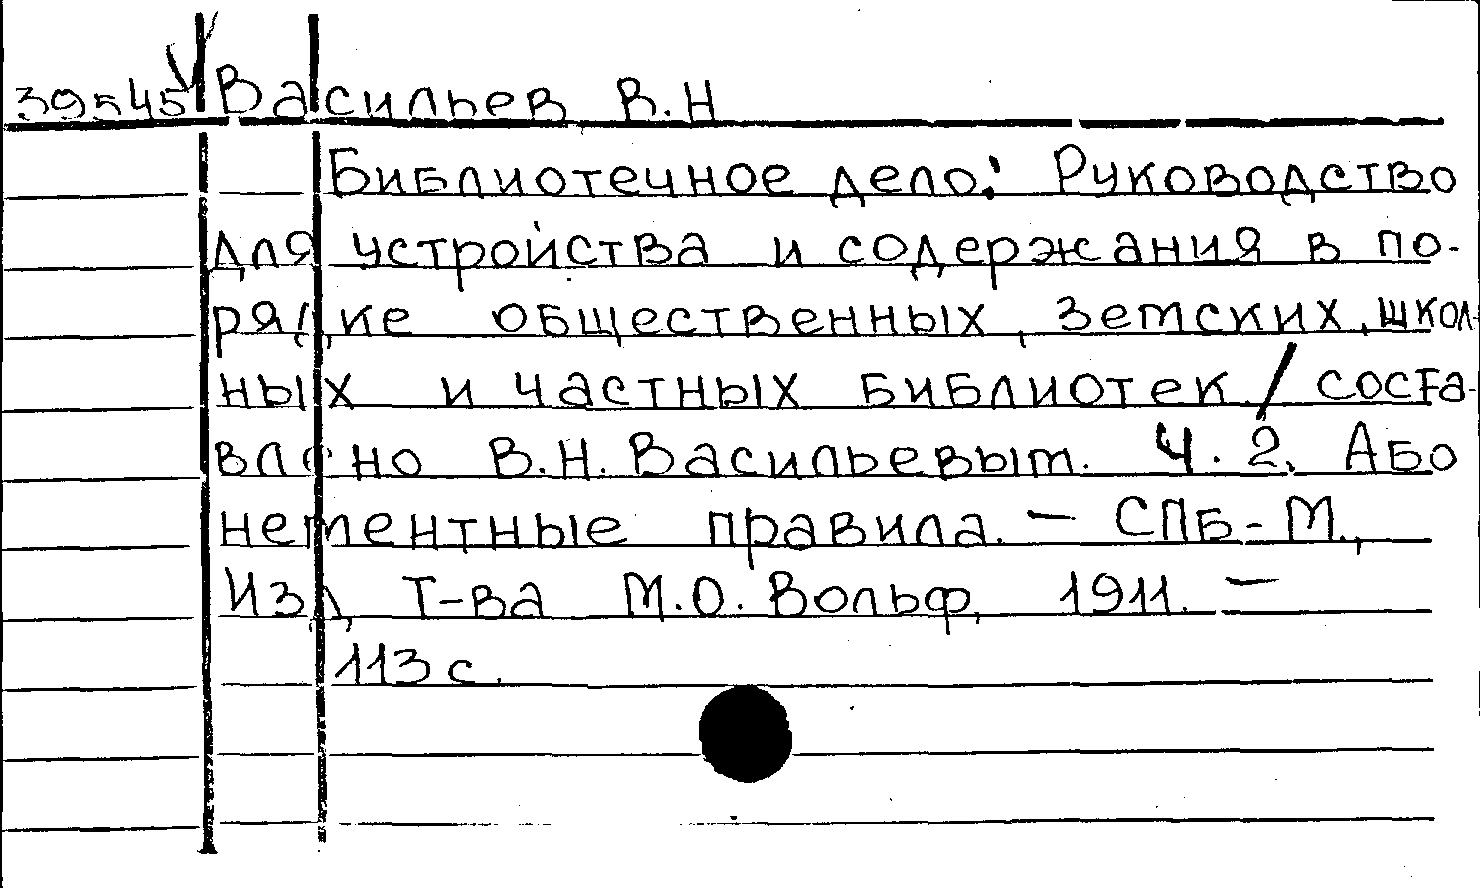 39545 Васильев В.Н
Библиотечное дело: Руководство
для устройства и содержания в по-
рядке общественных, земских, школ-
ных и частных библиотек / соста-
влено В.Н. Васильевым. Ч. 2. Або
нементные правила. – СПБ-М.,
Изд. Т-ва М.О. Вольф, 1911. –
113 с.